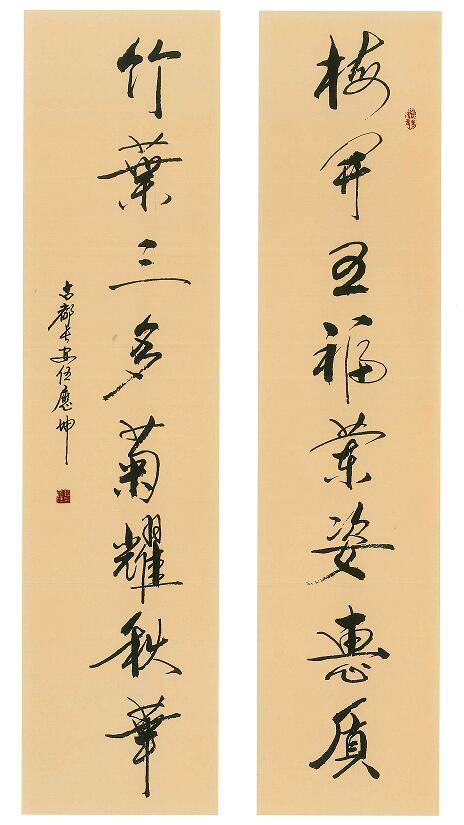 梅開五福蘭姿惠質
竹葉三多菊耀秋華
古都長安應坤